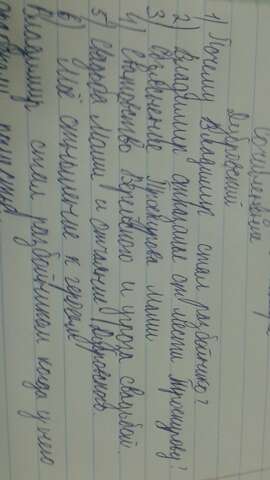 Сочинение
Дубровский
1) Почему Владимир стал разбойником?
2) Владимир отказался от мести Троекурову?
3) Обвинение Троекурова Маши
4) Сватовство Верейского и угроза свадьбой.
5) Свадьба Маши и отчаяние Дубровского
6) Моё отношение к героям
Владимир стал разбойником когда у него